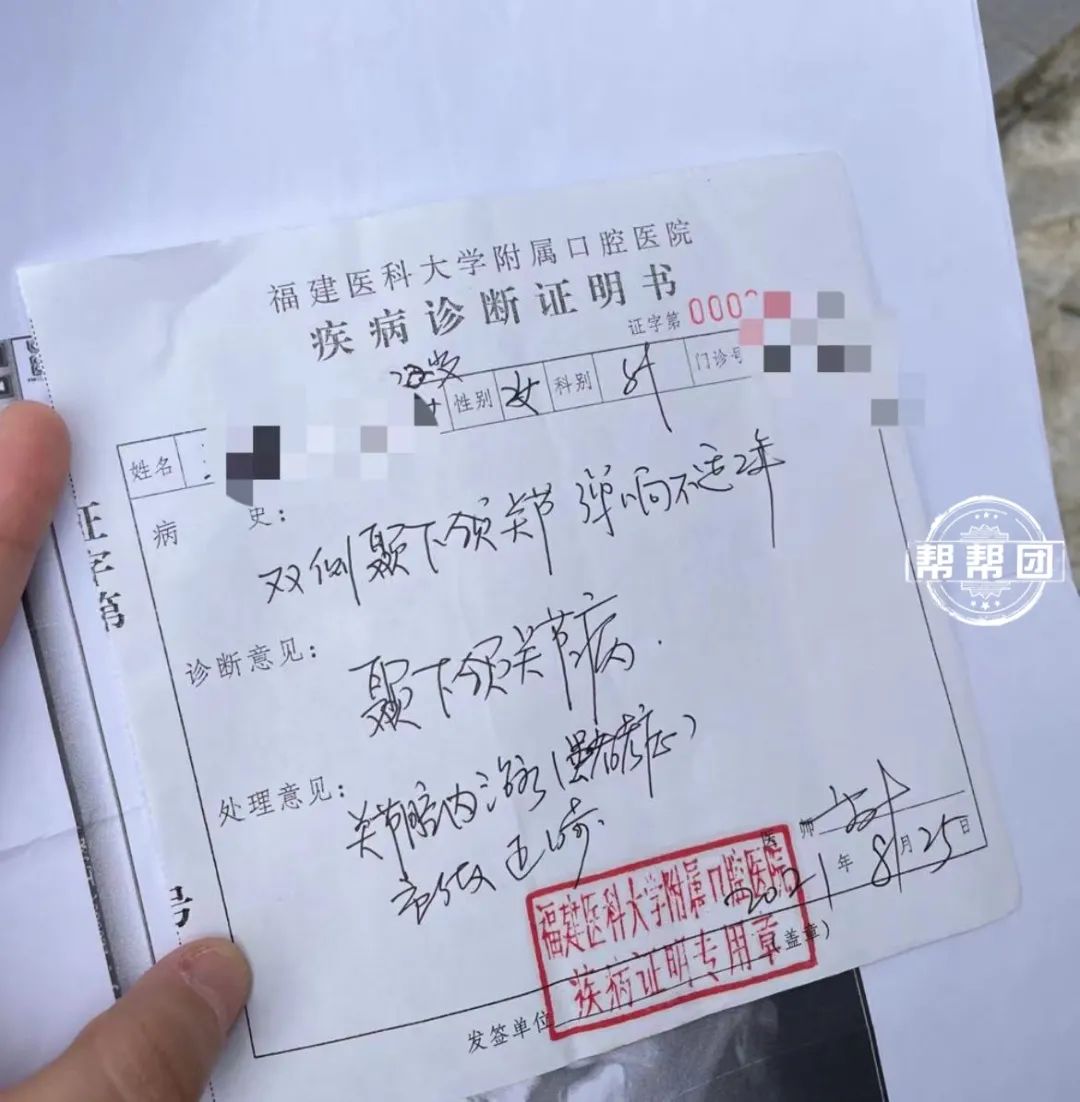 福建医科大学附属口腔医院
疾病诊断证明书
证字第 000
姓名 性别 女 科别 门诊号
病史:
双侧颞下颌关节弹响不适2年
诊断意见:
颞下颌关节病.
处理意见:
关节腔内
医师
2021年8月25日
福建医科大学附属口腔医院
疾病证明专用章
发签单位 (盖章)
证字第
号
帮帮团